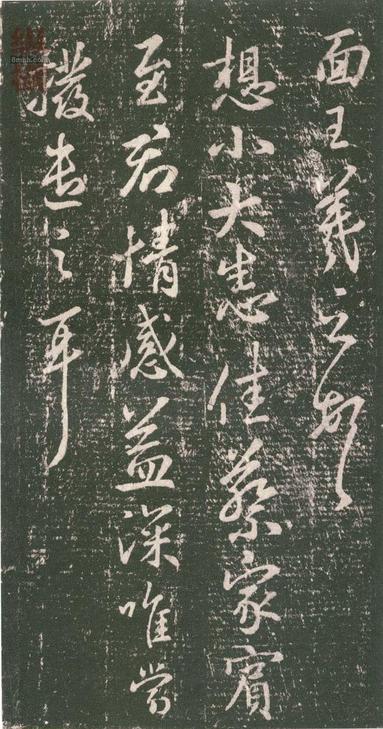 面王羲之頓
想小大悉佳蔡家賓
至君情感益深唯當
撥遣之耳
8mhh.com